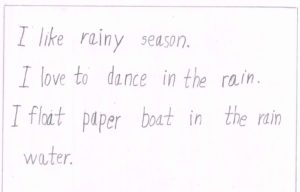 I like rainy season.
I love to dance in the rain.
I float paper boat in the rain
water.